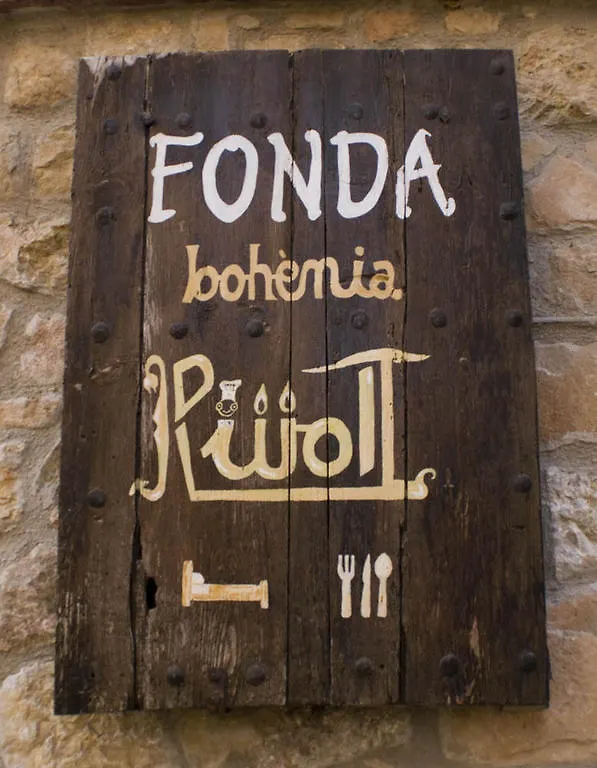 FONDA
bohènia.
Riuot